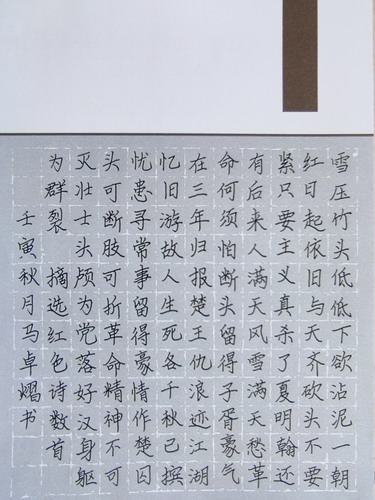 雪压竹头低低下欲沾泥一朝
红日起依旧与天齐砍头不要
紧只要主义真杀了夏明翰还
有后来人满天风雪满天愁革
命何须怕断头留得子胥豪气
在三年归报楚王仇浪迹江湖
忆旧游故人生死各千秋已摈
忧患寻常事留得豪情作楚囚
头可断肢可折革命精神不可
灭壮士头颅为党落好汉身躯
为群裂 摘选红色诗数首
壬寅秋月马卓熠书